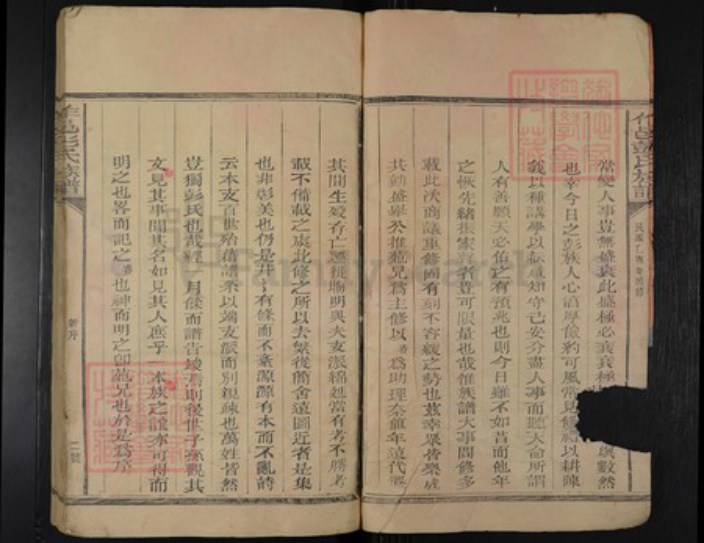 常變人事豈無盛衰此盛極必衰衰極
數然
也幸今日之彭族人心渾樸儉約可風常見修德以耕陳
義以種講學以耨類皆守己安分盡人事而聽天命所謂
人有善願天必佑之有預兆也則今日雖不如昔而他年
之恢先緒振家聲者豈可限量也哉惟族譜大事間修多
載此次商議重修固有刻不容緩之勢也茲幸眾皆樂成
共勷盛舉公推范兄為主修以 為助理奈餘年遠代湮
其間生歿存亡遷徙塋明與夫支派綿延當有考不勝考
載不備載之虞此修之所以去繁從簡舍遠圖近者是集
也非彰美也仍是井井有條而不紊源源有本而不亂詩
云本支百世殆舊譜來以端支派而別親疎也萬姓皆然
豈獨彭氏也哉經 月餘而譜告竣焉則後世子孫觀其
文見其事聞其名如見其人庶乎一本族之誼亦可得而
明之也畧而記之 也神而明之即范兄也於是為序
彭氏族譜
新序
二號
彭氏族譜